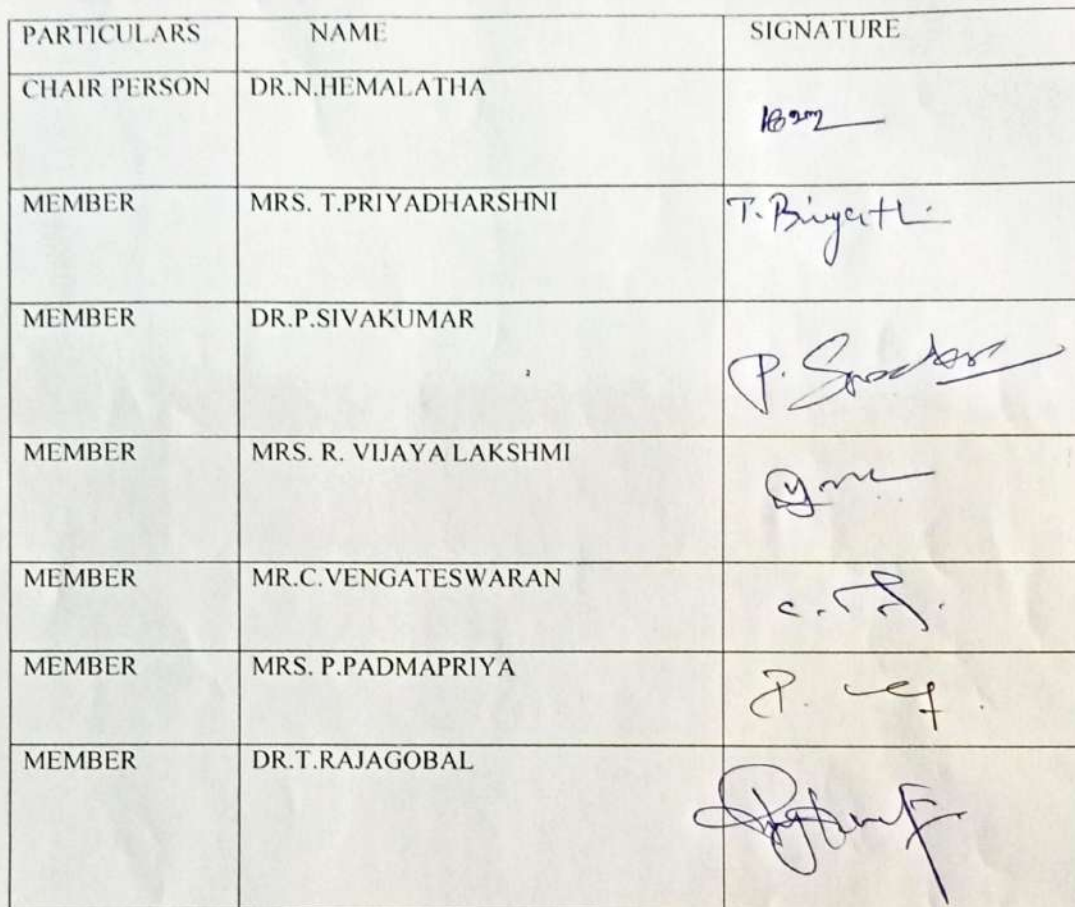 PARTICULARS NAME SIGNATURE
CHAIR PERSON DR.N.HEMALATHA
MEMBER MRS. T.PRIYADHARSHNI
MEMBER DR.P.SIVAKUMAR
MEMBER MRS. R. VIJAYA LAKSHMI
MEMBER MR.C.VENGATESWARAN
MEMBER MRS. P.PADMAPRIYA
MEMBER DR.T.RAJAGOBAL